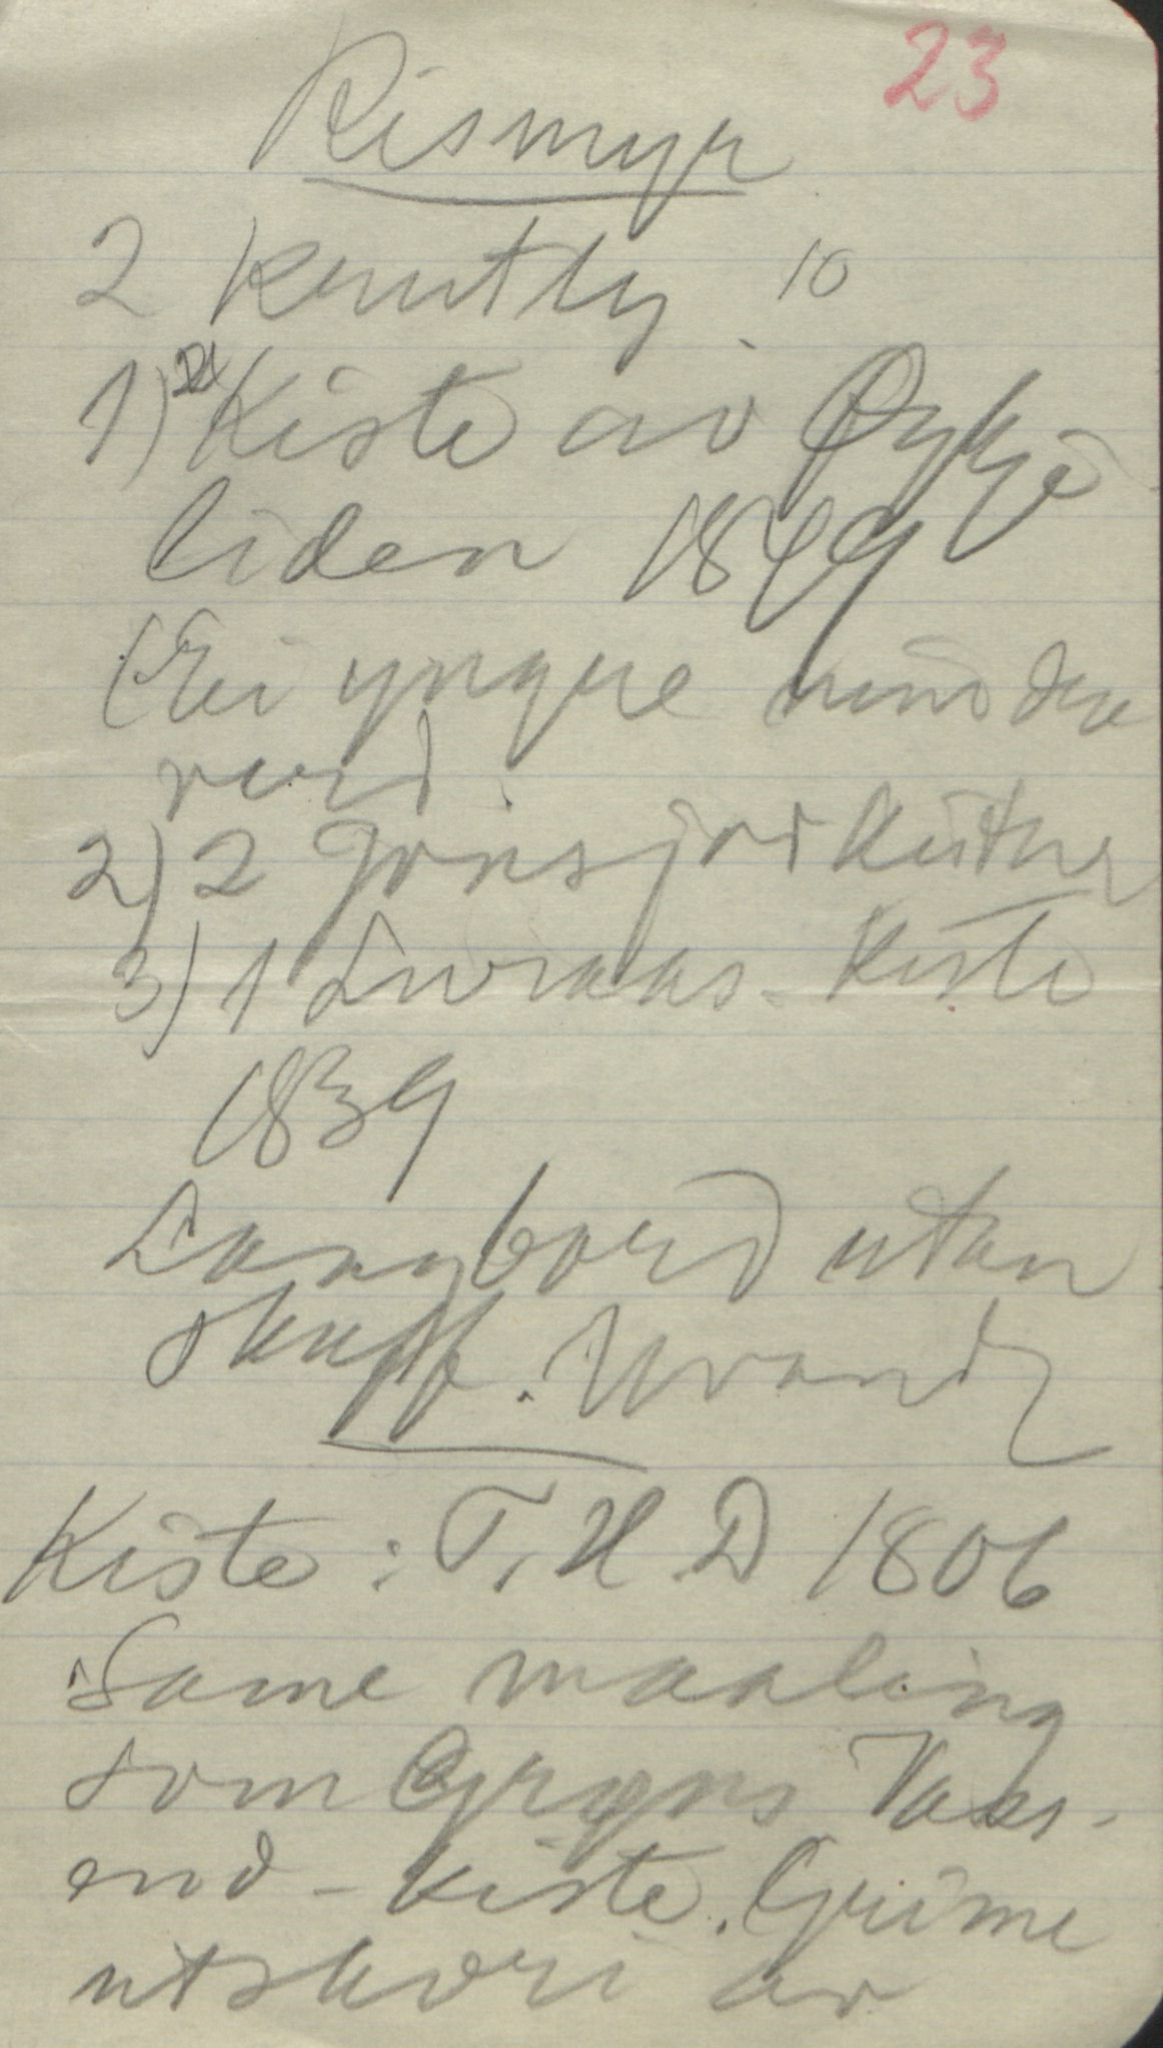 23
Rismyr
2 10
1) 2 Kiste av Øykje
liden 1849
(Ei yngre
verd.
2) 2 Jonsjord kistur
3) 1 Livraas. Kiste
1839
Langbord utan
skuff. Uvand
Kiste: T. H. D 1806
Same maaling
som Gryns Vass-
end-kiste. Grime
utskori av